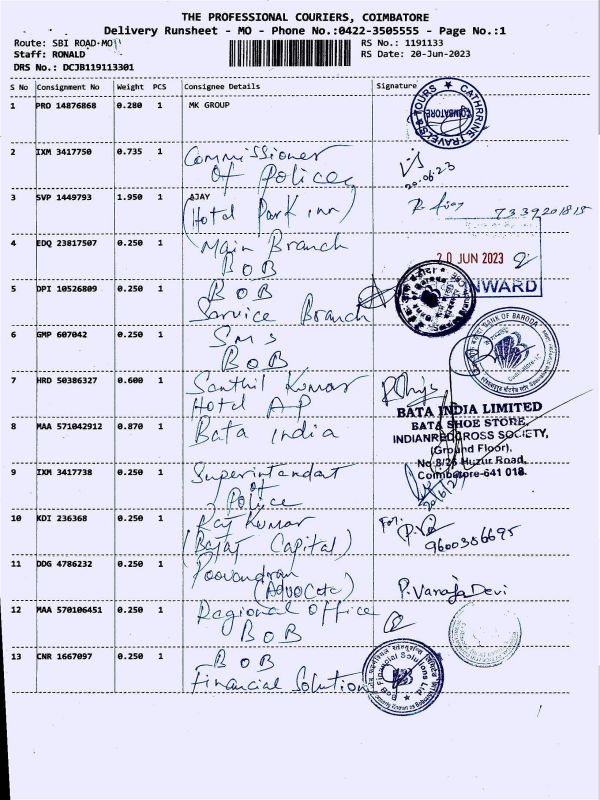 THE PROFESSIONAL COURIERS, COIMBATORE
Delivery Runsheet - MO - Phone No.:0422-3505555 - Page No.:1
Route: SBI ROAD-MO
Staff: RONALD
DRS No.: DCJB119113301
RS No.: 1191133
RS Date: 20-Jun-2023
S No Consignment No Weight PCS Consignee Details Signature
1 PRO 14876868 0.280 1 MK GROUP
CATHRINE TRAVELS TOURS
COIMBATORE
2 IXM 3417750 0.735 1 Commissioner
Of Police
20.06.23
3 SVP 1449793 1.950 1 AJAY
(Hotal Park inn) 7339201815
4 EDQ 23817507 0.250 1 Main Branch
BOB
20 JUN 2023
INWARD
5 DPI 10526809 0.250 1 BOB
Service Branch
6 GMP 607042 0.250 1 SMS
BOB
BANK OF BARODA
7 HRD 50386327 0.600 1 Santhil Kumar
Hotal AP
8 MAA 571042912 0.870 1 Bata india
BATA INDIA LIMITED
BATA SHOE STORE,
INDIANREDCROSS SOCIETY,
(Ground Floor),
No.8/26 Huzur Road,
Coimbatore-641 018.
9 IXM 3417738 0.250 1 Superintandat
Of
Police
10 KDI 236368 0.250 1 Raj Kumar
(Bajaj Capital)
For,
9600356695
11 DDG 4786232 0.250 1 Poovandran
(ADVOCate)
P. Vanaja Devi
12 MAA 570106451 0.250 1 Regional office
BOB
13 CNR 1667097 0.250 1 BOB
Financial Solution
BOB Financial Solutions Ltd.